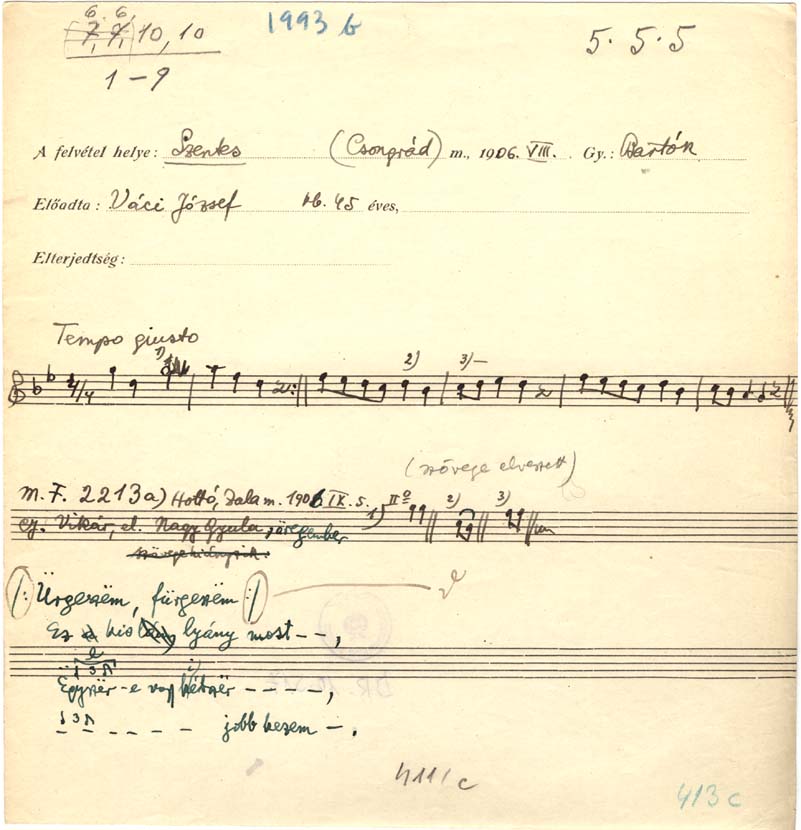 6 6
7, 7, 10, 10
1993 b
5. 5. 5
1 – 9
A felvétel helye: Szentes (Csongrád) m., 1906. VIII. Gy.: Bartók
Előadta: Váci József kb. 45 éves,
Elterjedtség:
Tempo giusto
1) 2) 3)
(szövege elveszett)
M. F. 2213a) Hottó, Zala m. 1906 IX. 5. 1) IIº 2) 3)
gy. Vikár, el. Nagy Gyula, öregember
/: Ürgeszëm, fürgeszëm :/
Ez a kis lyány most – –,
Egyszër-e vagy kétszër – – – –,
– – – – – – jobb kezem – .
411/c
413 c